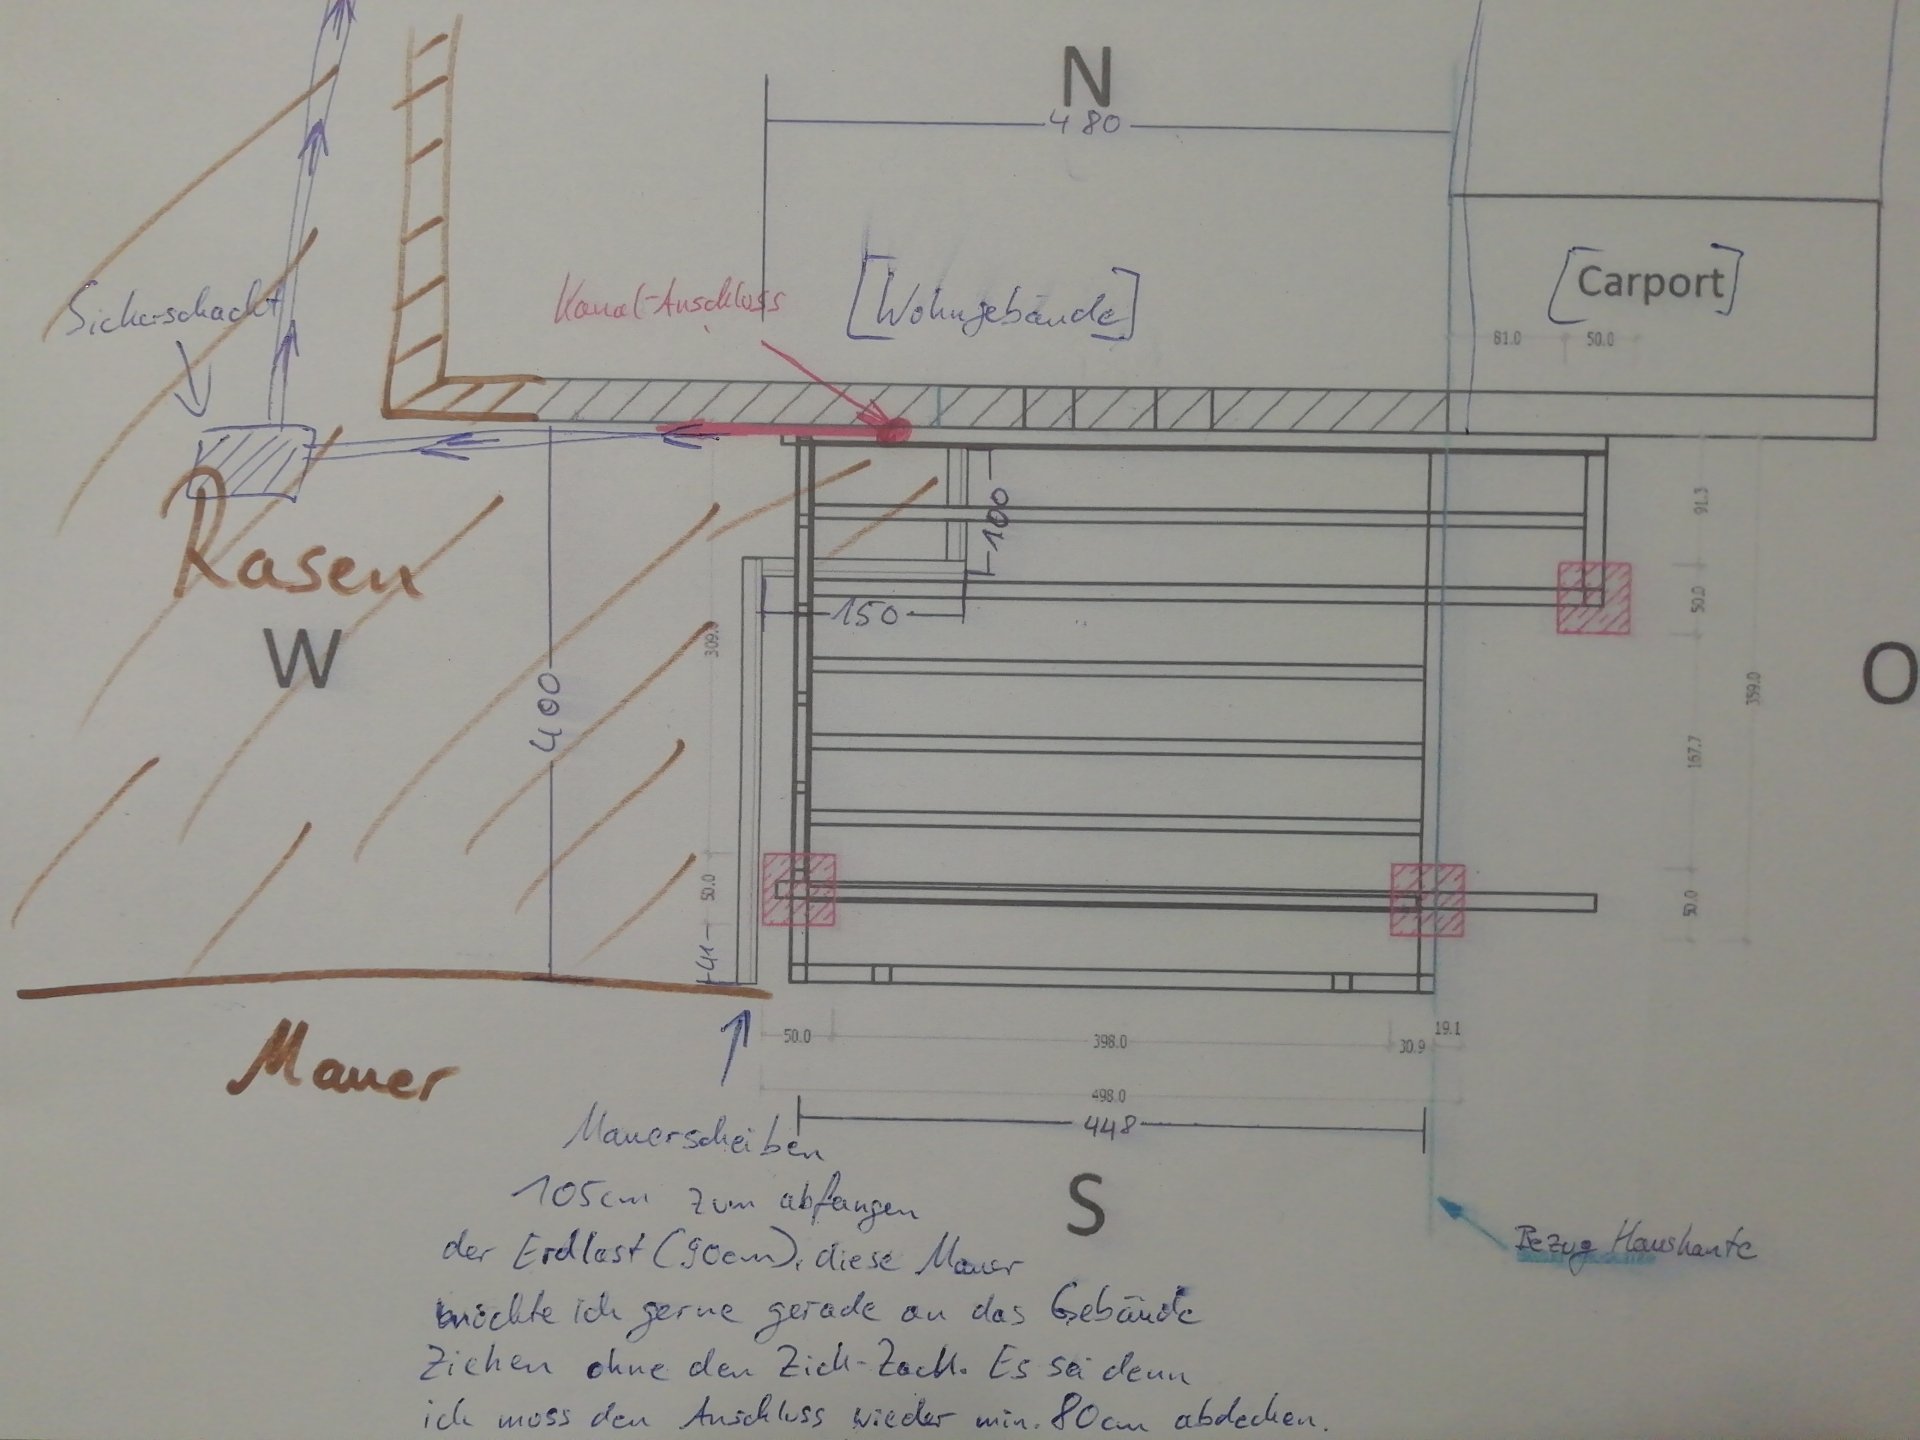 N
480
Sickerschacht
Kanal-Anschluss
[Wohngebäude]
[Carport]
81.0
50.0
100
91.3
Rasen
W
150
309.
50.0
O
400
359.0
167.7
50.0
50.0
41
Mauer
50.0
398.0
30.9
19.1
498.0
448
S
Mauerscheiben
105cm zum abfangen
der Erdlast (90cm), diese Mauer
möchte ich gerne gerade an das Gebäude
Ziehen ohne den Zick-Zack. Es sei denn
ich muss den Anschluss wieder min. 80cm abdecken.
Bezug Hauskante